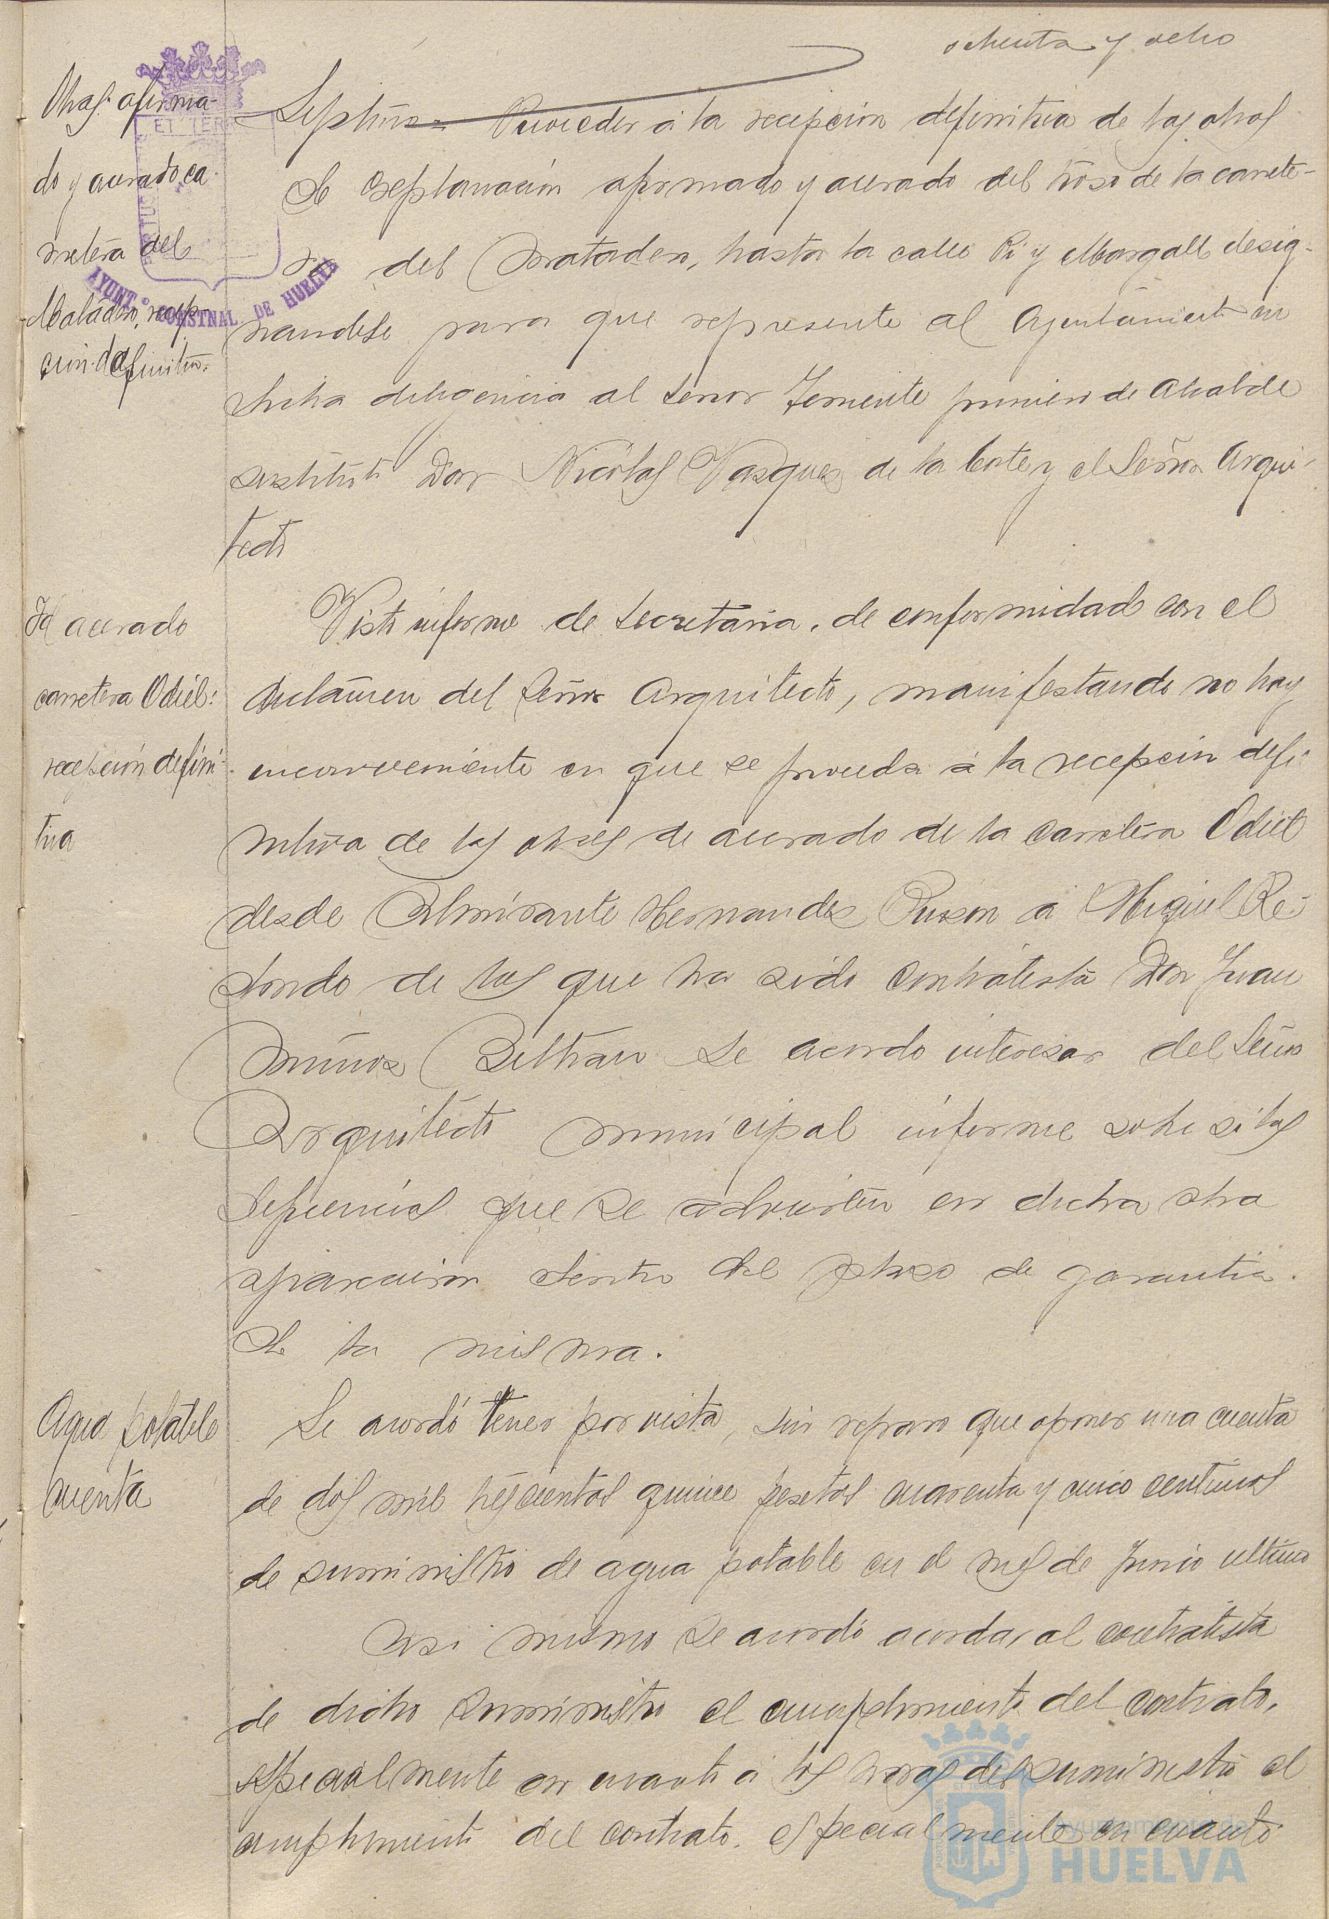 ochenta y ocho
Obras afirma-
do y acerado ca-
rretera del
Matadero, recep-
ción definitiva.
Septimo = Proceder á la recepción definitiva de las obras
de explanación afirmado y acerado del trozo de la carrete-
ra del Matadero, hasta la calle Pi y Margall desig-
nandose para que represente al Ayuntamiento en
dicha diligencia al Señor Teniente primero de Alcalde
sustituto Don Nicolas Vasquez de la Corte y el Señor Arqui-
tecto
Id acerado
carretera Odiel:
recepción defini-
tiva
Visto informe de Secretaria, de conformidad con el
dictamen del Señor Arquitecto, manifestando no hay
inconveniente en que se proceda á la recepción defi-
nitiva de las obras de acerado de la carretera Odiel
desde Almirante Hernandez Pinzon á Miguel Re-
dondo de las que ha sido contratista Don Juan
Muñoz Beltran se acordo interesar del Señor
Arquitecto municipal informe sobre si las
deficiencias que se advierten en dicha obra
aparecieron dentro del plazo de garantia
de la misma.
Agua potable
cuenta
Se acordó tener por vista, sin reparo que oponer una cuenta
de dos mil trescientas quince pesetas cuarenta y cinco centimos
de suministro de agua potable en el mes de Junio ultimo
Asi mismo se acordó acordar al contratista
de dicho suministro el cumplimiento del contrato,
especialmente en cuanto á las horas del suministro el
cumplimiento del contrato. especialmente en cuanto
AYUNT.º CONSTNAL DE HUELVA
Ayuntamiento de
HUELVA